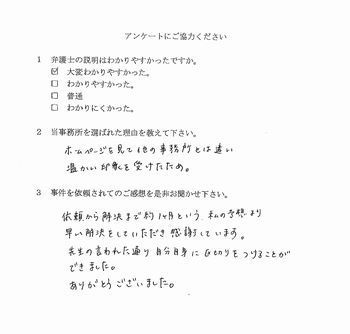 アンケートにご協力ください
1 弁護士の説明はわかりやすかったですか。
☑ 大変わかりやすかった。
□ わかりやすかった。
□ 普通
□ わかりにくかった。
2 当事務所を選ばれた理由を教えて下さい。
ホームページを見て他の事務所とは違い
温かい印象を受けたため。
3 事件を依頼されてのご感想を是非お聞かせ下さい。
依頼から解決まで約1ヶ月という、私の予想より
早い解決をしていただき感謝しています。
先生の言われた通り自分自身に区切りをつけることが
できました。
ありがとうございました。